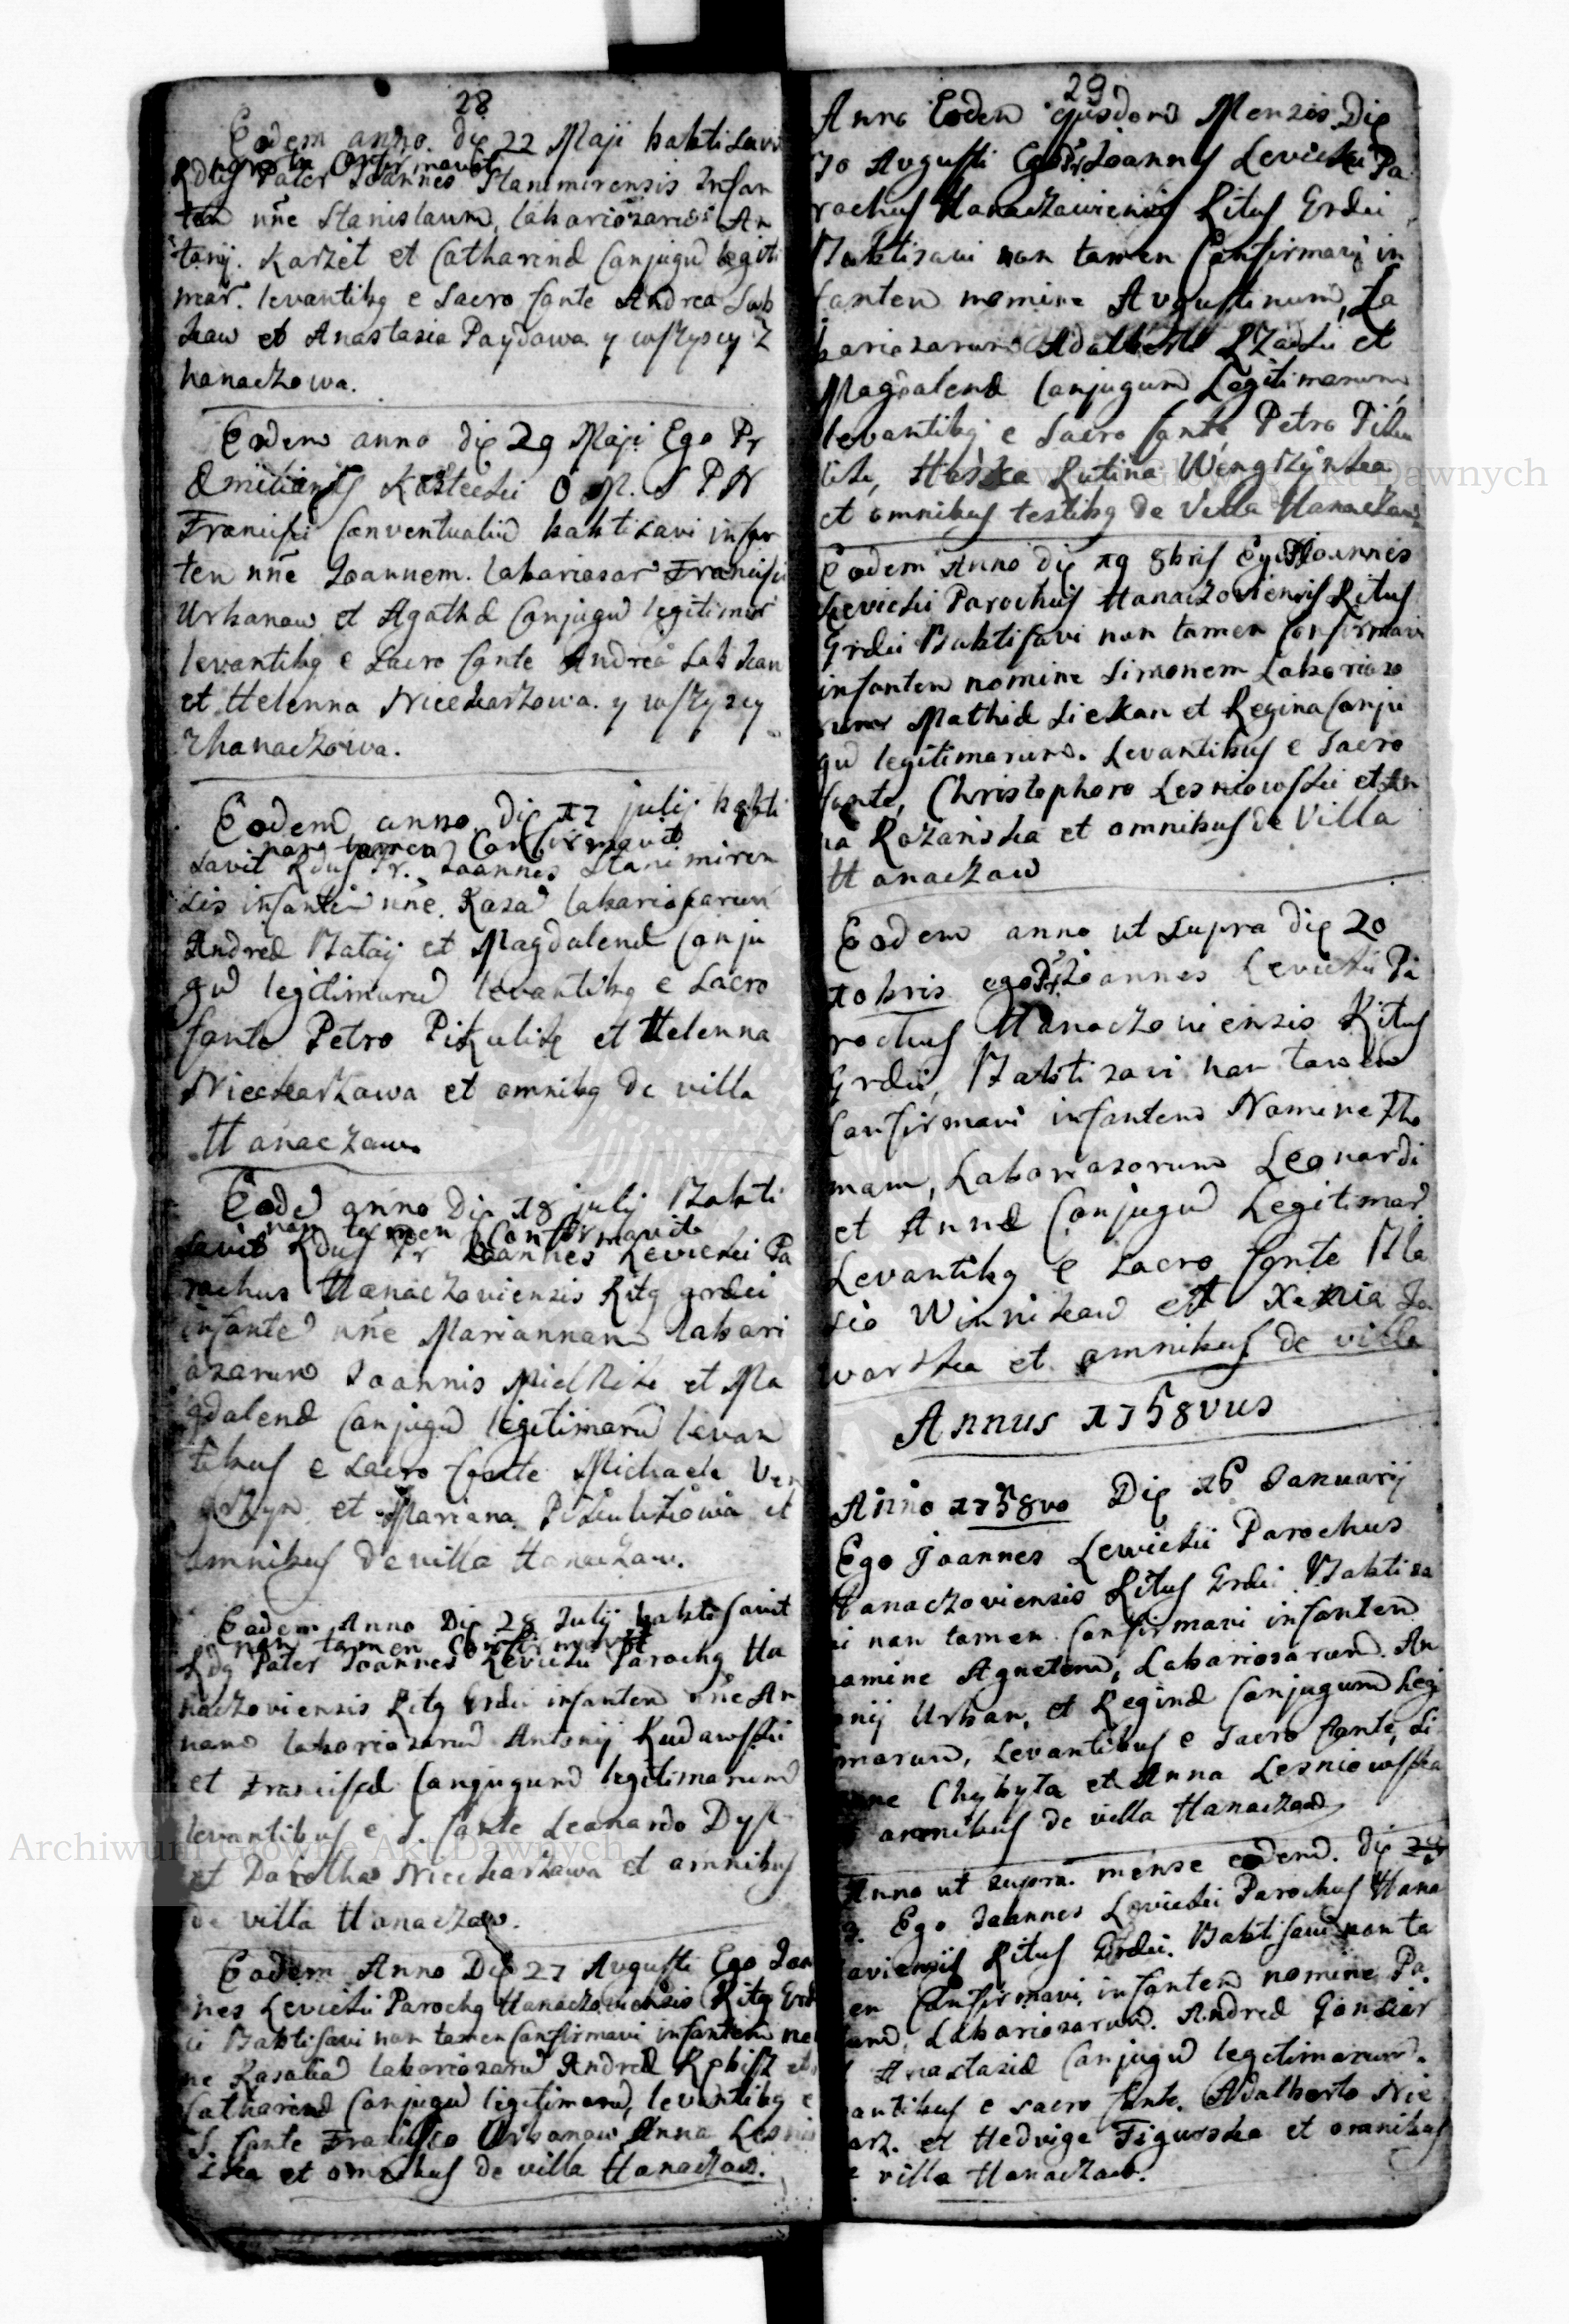 28
Eodem anno. die 22 Maji baptisavit
non tn Confirmavit
Rdus Pater Joannes Stanimirensis Infan
tem nñe Stanislaum, laboriosorum An
tonij. Karzet et Catharinæ Conjugũ legiti
mor. levantibq e Sacro fonte Andrea
et Anastasia Paydowa y wszyscy z
hanaczowa.
Eodem anno die 29 Maji Ego Pr
Kostecki O M. S P. N
Francisci Conventualiũ baptisavi infan
tem nñe Joannem. laboriosor Francisci
Urbanow et Agathæ Conjugũ legitimor
levantibq e Sacro fonte Andrea
et Helenna Nieckarzowa. y wszyscy
zhanaczowa.
Eodem anno die 17 julij bapti
non tamen Confirmavit
savit Rdus Pr. Joannes Stanimiren
sis infantẽ nñe. Rosã laboriosorum
Andreæ Bataij et Magdalenæ Conju
gũ legitimorũ levantibq e Sacro
fonte Petro Pikulik et Helenna
Nieckarzowa et omnibq de villa
Hanaczow.
Eodẽ anno die 18 julij Bapti
non tamen Confirmavit
savit Rdus Pr Joannes Levicki Pa
rochus Hanaczoviensis Ritq grdci
infantẽ nñe Mariannam labori
osorum Joannis et Ma
gdalenæ Conjugũ legitimorũ levan
tibus e Sacro fonte Michaele Ven
grzyn et Mariana Pikulikowa et
omnibus de villa Hanaczow.
Eodem Anno Die 28 Julij baptisavit
non tamen Confirmavit
Rdq Pater Joannes Levicki Parochq Ha
naczoviensis Ritq Grdci infantem nñe An
nam laboriosorũ Antonij Rudawski
et Franciscæ Conjugum legitimorum
levantibus e S. fonte Leonardo
et Dorothea Nieckarzowa et omnibus
de villa Hanaczow.
Eodem Anno Die 27 Augusti Ego Joan
nes Levicki Parochq Hanaczoviensis Ritq Grd
ci Baptisavi non tamen Confirmavi infantem no
ne Rosaliã laboriosorũ Andreæ et
Catharinæ Conjugũ legitimorũ, levantibq e
S. fonte Francisco Urbanow Anna Lesnio
ska et omnibus de villa Hanaczow.
29
Anno Eodem ejusdem Mensis Die
30 Augusti Ego Pr Joannes Levicki Pa
rochus Hanaczoviensis Ritus Grdci
Babtisavi non tamen Confirmavi in
fantem nomine Augustinum, La
boriosorum Adalberti et
Magdalenæ Conjugum Legitimorum,
levantibq e Sacro fonte Petro Piku
lik, Rutina Wengrzynska
et omnibus testibq de Villa Hanaczow
Eodem Anno die 19 8bris Ego Pr Joannes
Levicki Parochus Hanaczoviensis Ritus
Grdci Babtisavi non tamen Confirmavi
infantem nomine Simonem Laborioso
rum Mathiæ et Regina Conju
gũ legitimorum. Levantibus e Sacro
fonte, Christophoro Lesniowski et An
na Rozanska et omnibus de Villa
Hanaczow
Eodem anno ut supra die 20
10bris ego Pr Joannes Levicki Pa
rochus Hanaczoviensis Ritus
Grdci, Babtisavi non tamen
Confirmavi infantem Nomine Tho
mam, Laboriosorum Leonardi
et Annæ Conjugũ Legitimor
Levantibq e Sacro fonte Bla
sio Winnikow et Xenia Ja
worska et omnibus de villa
Annus 1758vus
Anno 1758vo Die 16 Januarij
Ego Joannes Lewicki Parochus
Hanaczoviensis Ritus Grdci Babtisa
vi non tamen Confirmavi infantem
nomine Agnetem, Laboriosorum. An
onij Urban, et Reginæ Conjugum Legi
morum, Levantibus e Sacro fonte, Si
one Chybyta et Anna Lesniowska
omnibus de villa Hanaczow
Anno ut supra. mense eodem. die
Ego Joannes Levicki Parochus Hana
oviensis Ritus Grdci. Babtisavi non ta
en Confirmavi, infantem nomine, Pa.
Laboriosorum. Andreæ Gonsior
Anastasiæ Conjugũ legitimorum.
antibus e sacro fonte. Adalberto Nie
arz. et Hedvige Figurska et omnibus
villa Hanaczow.
Archiwum Główne Akt Dawnych
Archiwum Główne Akt Dawnych